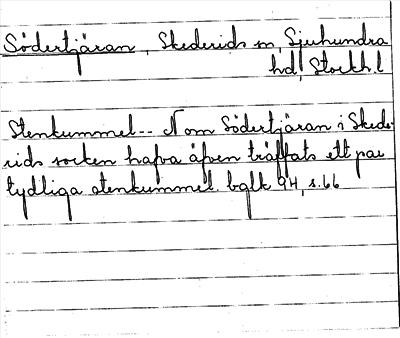 Södertjäran, Skederids sn, Sjuhundra
hd, Stockh. l
Stenkummel -- N om Södertjäran i Skede-
rids socken hafva äfven träffats ett par
tydliga stenkummel. bglk 94, s. 66